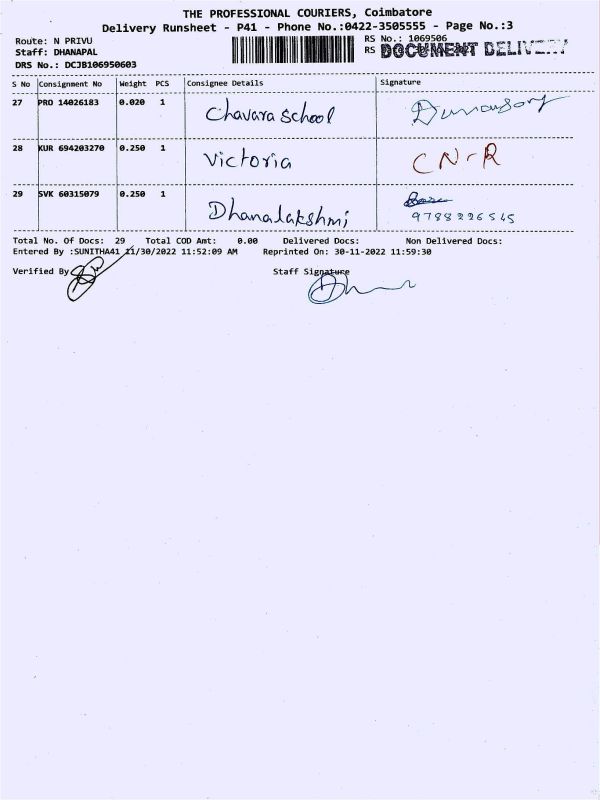 THE PROFESSIONAL COURIERS, Coimbatore
Delivery Runsheet - P41 - Phone No.:0422-3505555 - Page No.:3
Route: N PRIVU
Staff: DHANAPAL
DRS No.: DCJB106950603
RS No.: 1069506
RS DOCUMENT DELIVERY
S No Consignment No Weight PCS Consignee Details Signature
27 PRO 14026183 0.020 1 Chavara School
28 KUR 694203270 0.250 1 Victoria CN-R
29 SVK 60315079 0.250 1 Dhanalakshmi
Total No. Of Docs: 29 Total COD Amt: 0.00 Delivered Docs: Non Delivered Docs:
Entered By :SUNITHA41 11/30/2022 11:52:09 AM Reprinted On: 30-11-2022 11:59:30
Verified By Staff Signature